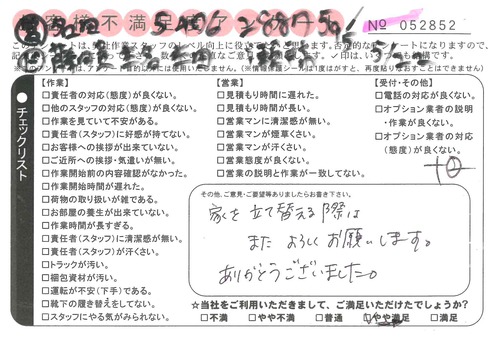 客様不満足度ア
No 052852
【作業】
□責任者の対応(態度)が良くない。
□他のスタッフの対応(態度)が良くない。
□作業を見ていて不安がある。
□責任者(スタッフ)に好感が持てない。
□お客様への挨拶が出来ていない。
□ご近所への挨拶・気遣いが無い。
□作業開始前の内容確認がなかった。
□作業開始時間が遅れた。
□荷物の取り扱いが雑である。
□お部屋の養生が出来ていない。
□作業時間が長すぎる。
□責任者(スタッフ)に清潔感が無い。
□責任者(スタッフ)が汗くさい。
□トラックが汚い。
□梱包資材が汚い。
□運転が不安(下手)である。
□靴下の履き替えをしてない。
□スタッフにやる気がみられない。
【営業】
□見積もり時間に遅れた。
□見積もり時間が長い。
□営業マンに清潔感が無い。
□営業マンが煙草くさい。
□営業マンが汗くさい。
□営業態度が良くない。
□営業の説明と作業が一致してない。
【受付・その他】
□電話の対応が良くない。
□オプション業者の説明
・作業が良くない。
□オプション業者の対応
(態度)が良くない。
チェックリスト
その他、ご意見・ご要望等ありましたらお書き下さい。
家を立て替える際は
またよろしくお願いします。
ありがとうございました。
☆当社をご利用いただきまして、ご満足いただけたでしょうか?
□不満 □やや不満 □普通 □やや満足 □満足